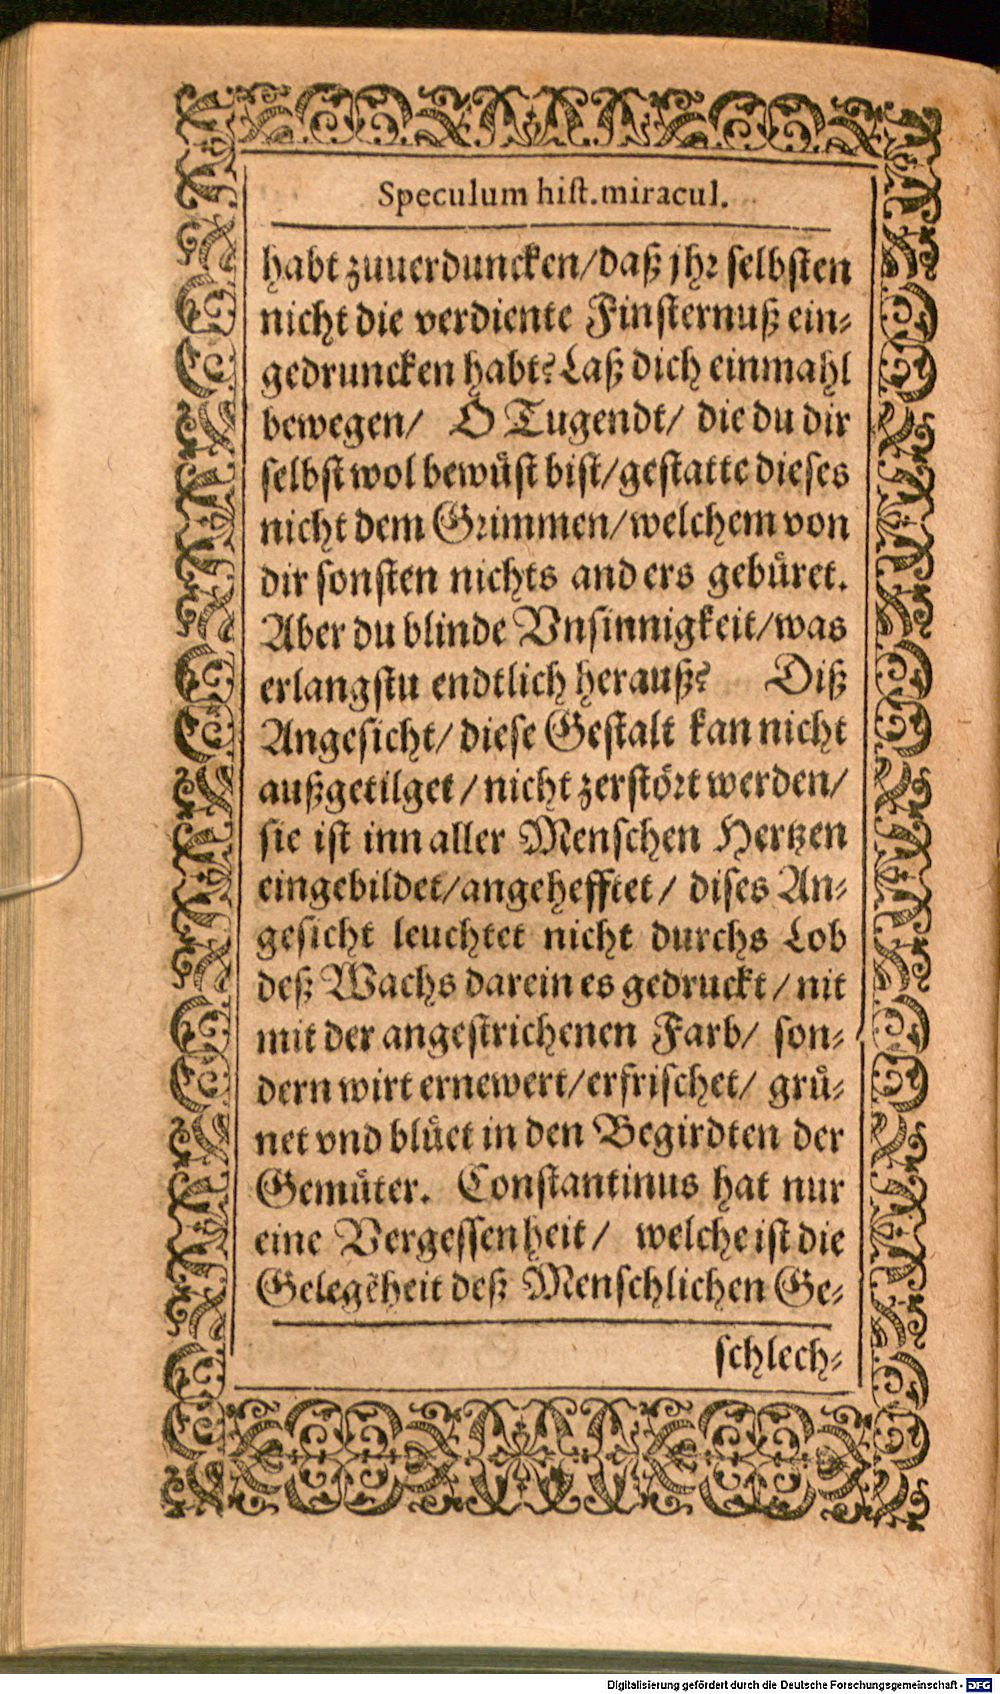 Speculum hist. miracul.
habt zuuerduncken/daß jhr selbsten
nicht die verdiente Finsternuß ein-
gedruncken habt? Laß dich einmahl
bewegen/ O Tugendt/ die du dir
selbst wol bewüst bist/gestatte dieses
nicht dem Grimmen/welchem von
dir sonsten nichts anders gebüret.
Aber du blinde Vnsinnigkeit/was
erlangstu endtlich herauß? Diß
Angesicht/ diese Gestalt kan nicht
außgetilget / nicht zerstört werden/
sie ist inn aller Menschen Hertzen
eingebildet/angehefftet/ dises An-
gesicht leuchtet nicht durchs Lob
deß Wachs darein es gedruckt / nit
mit der angestrichenen Farb/ son-
dern wirt ernewert/erfrischet/ grü-
net vnd blüet in den Begirdten der
Gemüter. Constantinus hat nur
eine Vergessenheit/ welche ist die
Gelegẽheit deß Menschlichen Ge-
schlech-
Digitalisierung gefördert durch die Deutsche Forschungsgemeinschaft - DFG